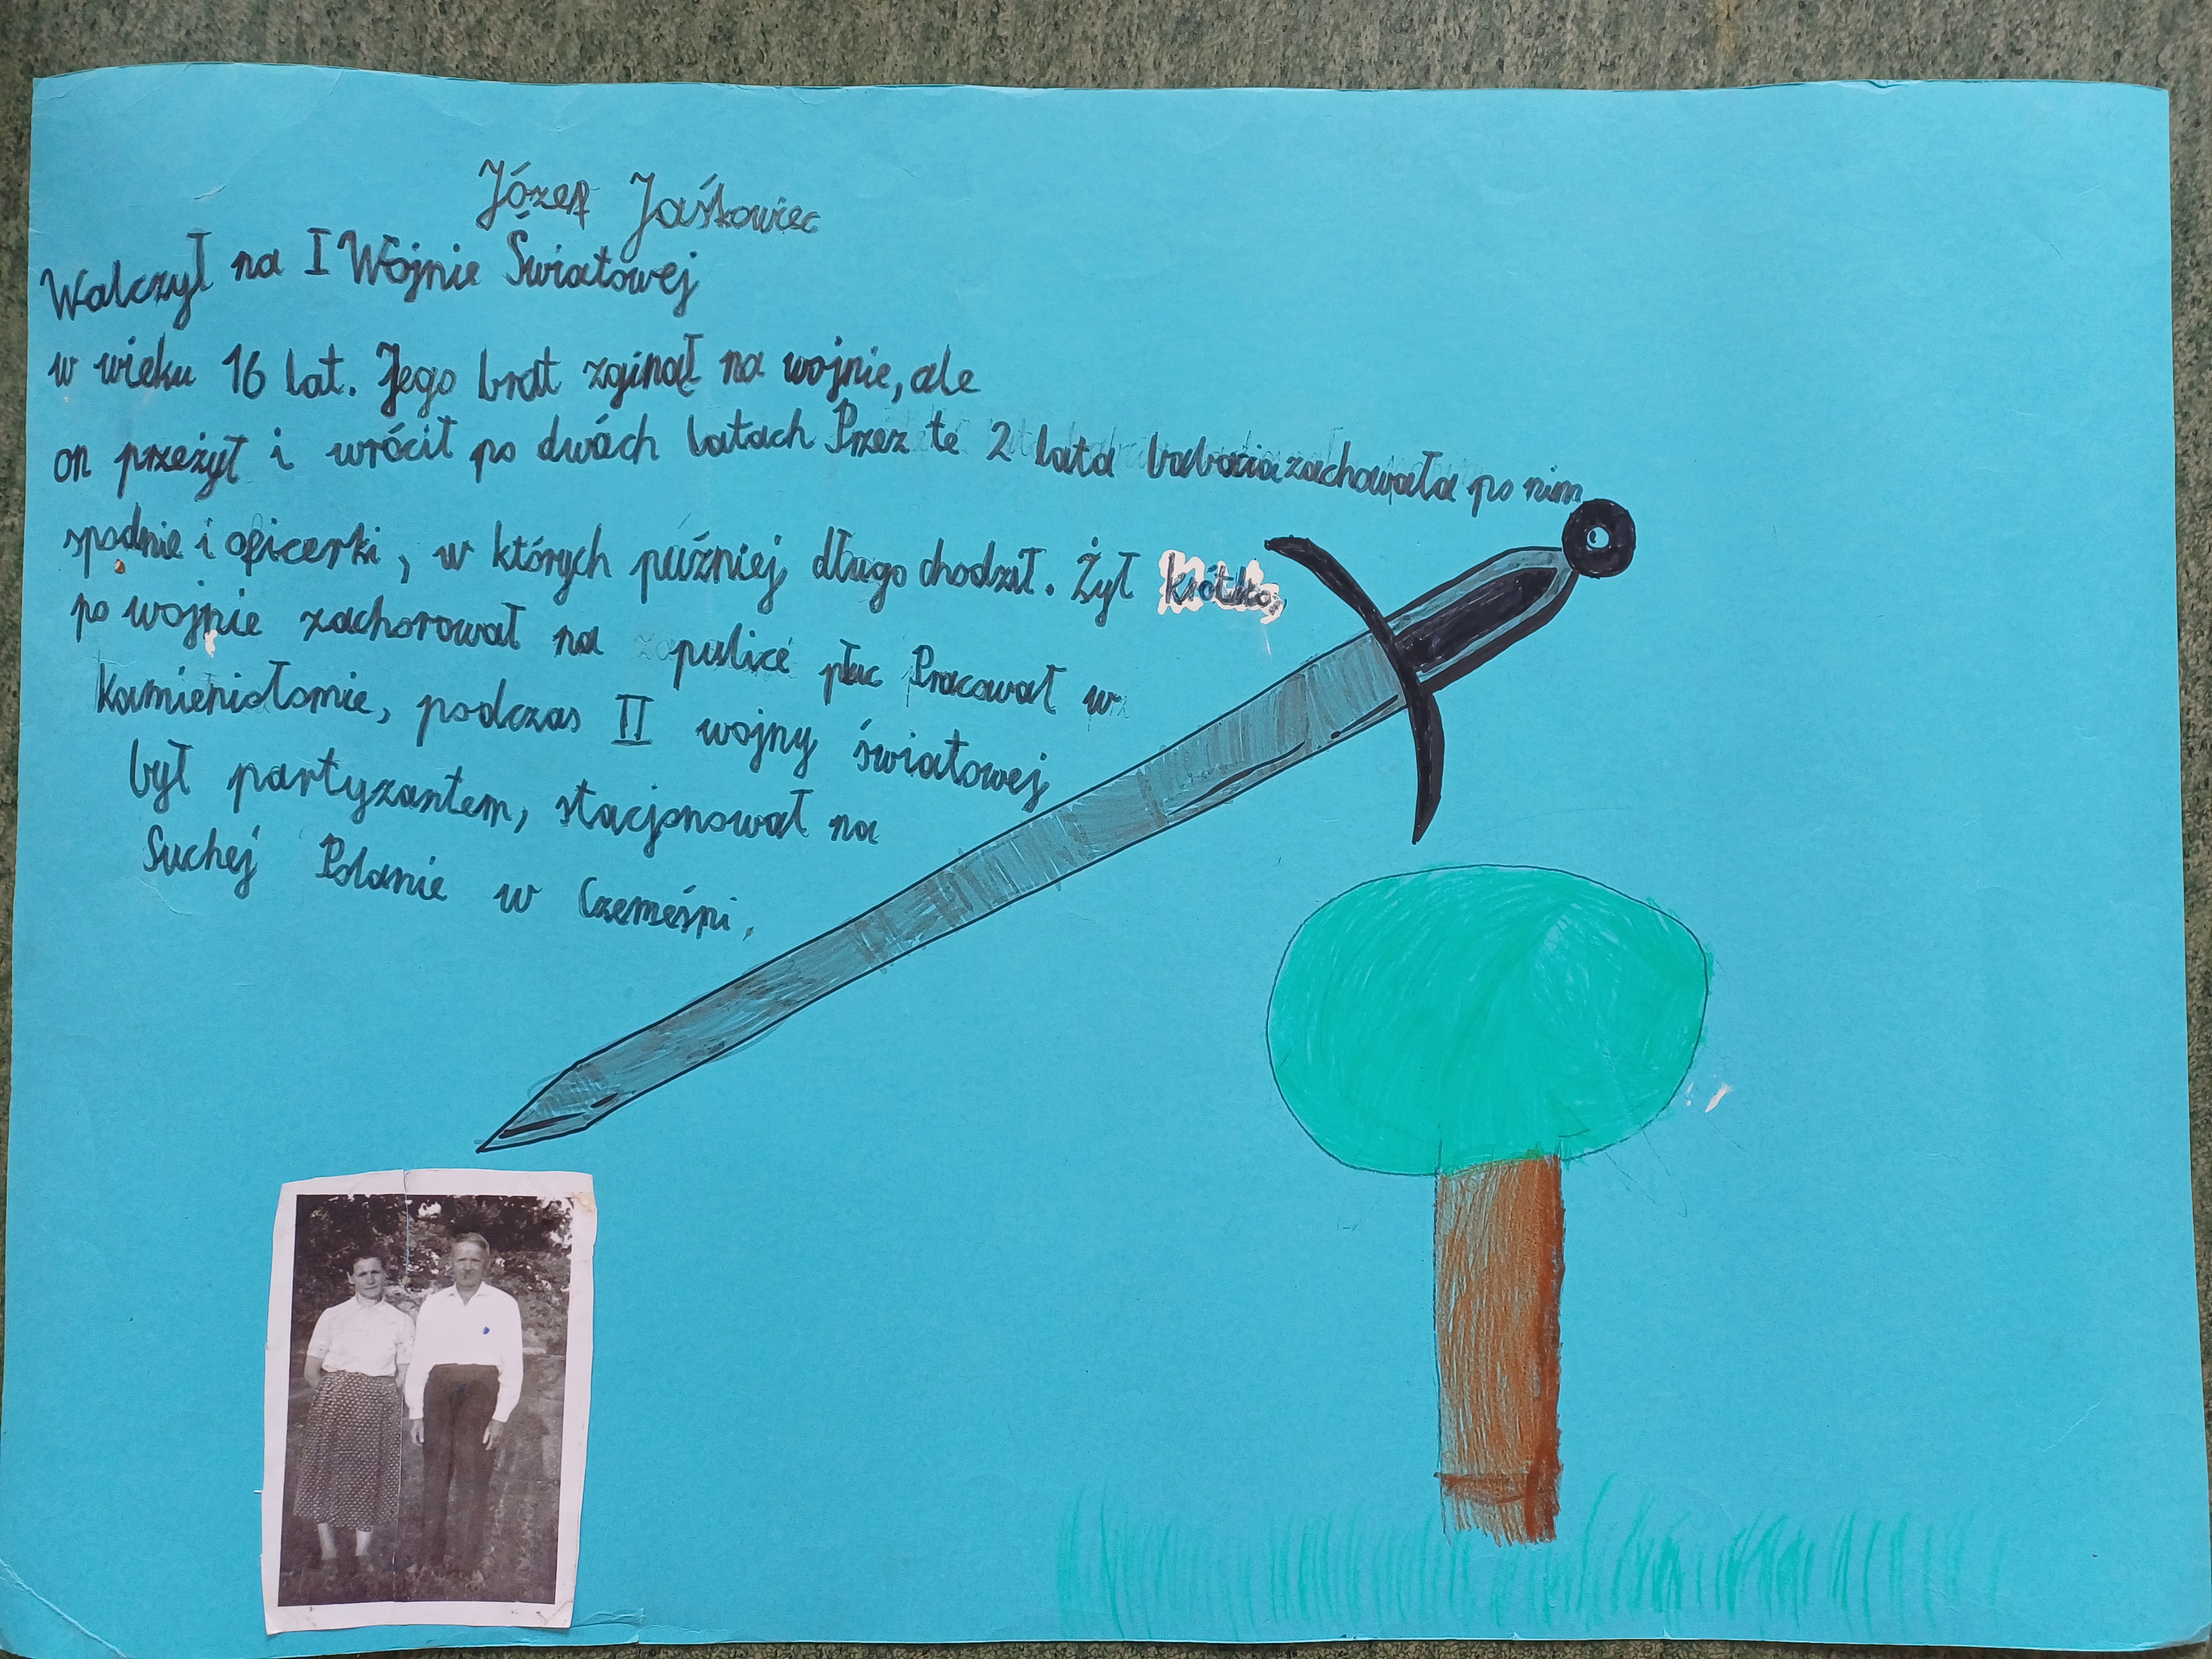 Józef Jaśkowiec
Walczył na I Wojnie Światowej
w wieku 16 lat. Jego brat zginął na wojnie, ale
on przeżył i wrócił po dwóch latach Przez te 2 lata babcia zachowała po nim
spodnie i oficerki, w których puźniej długo chodził. Żył krótko,
po wojnie zachorował na pylicę płuc Pracował w
kamieniołomie, podczas II wojny światowej
był partyzantem, stacjonował na
Suchej Polanie w